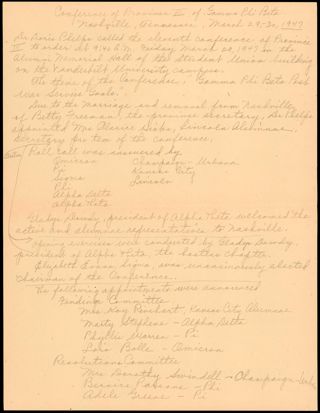 Conference of Province II of Gamma Phi Beta
Nashville, Tennessee, March 29-30, 1947
Doris Phelps called the eleventh conference of Province
II to order at 9:40 A.M. Friday March 28, 1947 in the
Alumni Memorial Hall of the Student Union building
on the Vanderbilt University campus.
theme of the conference, "Gamma Phi Beta Post
War Service Goals".
Due to the marriage and removal from Nashville
of Betty Freeman, the province secretary, Phelps
appointed Mrs. Clerice Lincoln Alumnae,
Secretary pro tem of the conference.
Roll call was answered by
Omicron Champaign-Urbana
Pi Kansas City
Sigma Lincoln
Phi
Alpha Delta
Alpha Theta
Gladys Dowdy, president of Alpha Theta welcomed the
active and alumnae representatives to Nashville.
Opening exercises were conducted by Gladys Dowdy,
president of Alpha Theta, the hostess chapter.
Elizabeth Evans Sigma, was unanimously elected
Chairman of the Conference.
The following appointments were announced
Finding Committee
Mrs. Kay Kansas City Alumnae
Marty Stephens - Alpha Delta
Phyllis Warren - Pi
Lois Bolle - Omicron
Resolutions Committee
Mrs. Dorothy Swindell - Champaign-Urbana
Bernice Parsons - Phi
Adele Greene - Pi